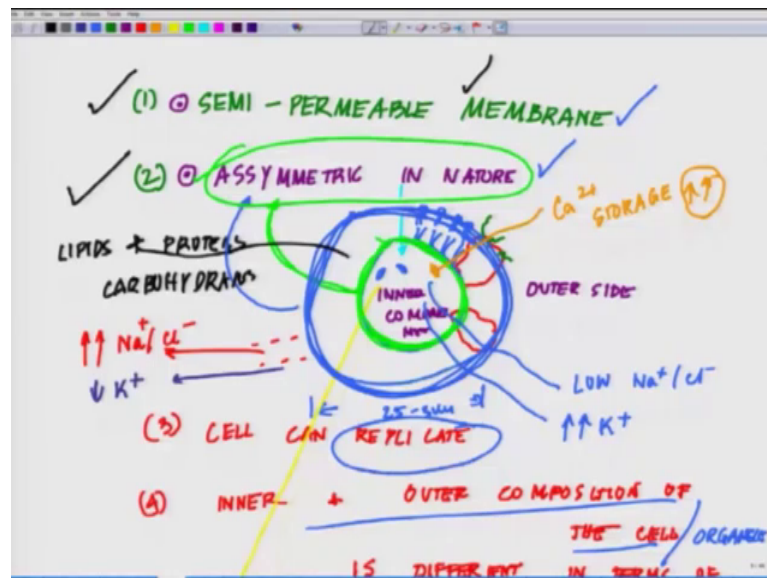 (1) SEMI - PERMEABLE MEMBRANE
(2) ASSYMMETRIC IN NATURE
Ca2+ STORAGE
LIPIDS + PROTEINS
CARBOHYDRANS
INNER
OUTER SIDE
Na+/Cl-
K+
LOW Na+/Cl-
K+
(3) CELL CAN REPLICATE
(4) INNER + OUTER COMPOSITION OF
THE CELL/ORGANELLE
IS DIFFERENT IN TERMS OF